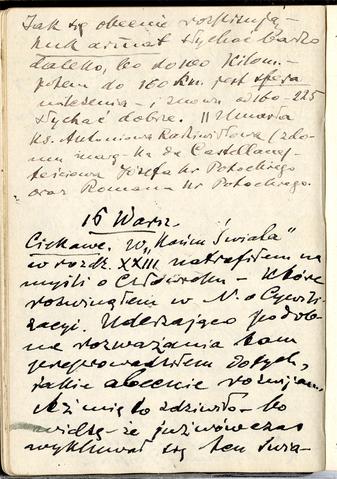 Jak się obecnie
huk armat słychać bardzo
daleko, bo do 100 kilom. –
potem do 160 km. jest sfera
milczenia – i znowu od 160–225
słychać dobrze. || Umarła
ks. Antoniowa Radziwiłłowa (z do-
mu marg-ka de Castellane) –
teściowa Józefa hr Potockiego
oraz Romana hr Potockiego.
16 Warsz.
Ciekawe. W „Końcu Świata"
w rozdz. XXIII natrafiłem na
myśli o Człowieku – które
rozwinąłem w N. o Cywili-
zacyi. Uderzająco podob-
ne rozważania tam
przeprowadziłem do tych,
jakie obecnie rozwijam.
Aż mię to zdziwiło – bo
widzę – że już wówczas
wykluwał się ten świa-